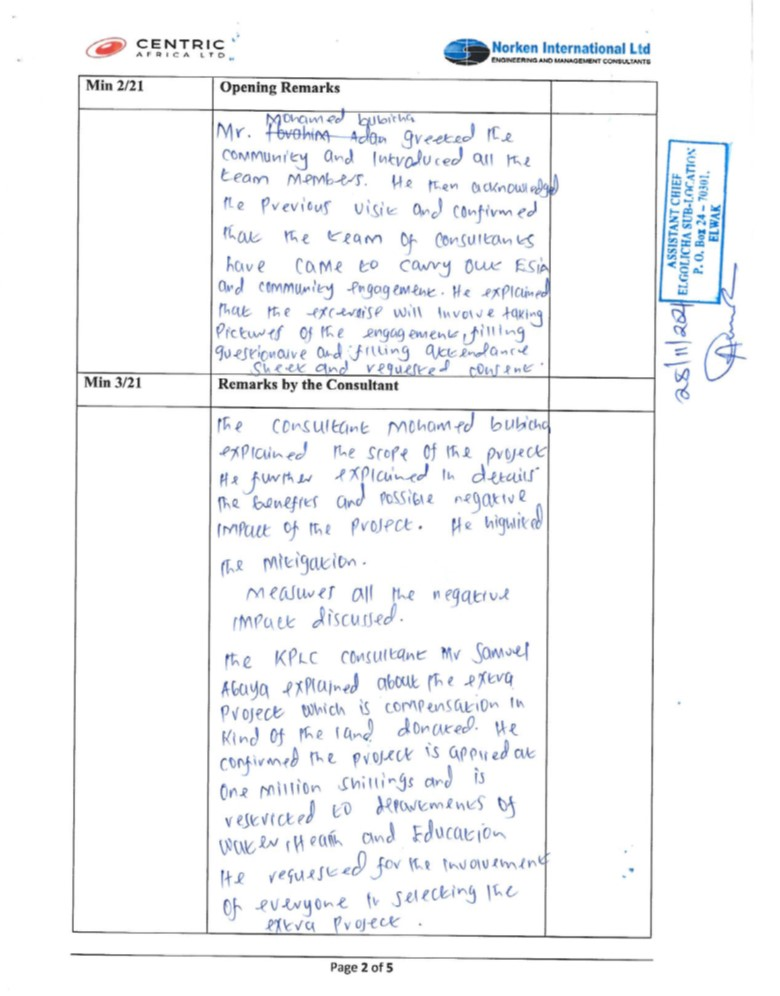 CENTRIC
AFRICA LTD
Norken International Ltd
ENGINEERING AND MANAGEMENT CONSULTANTS
Min 2/21 Opening Remarks
Mohamed bubicha
Mr. Ibrahim Adan greeted the
community and Introduced all the
team members. He then acknowledged
the Previous visit and confirmed
that the team of consultants
have came to carry out ESIA
and community engagement. He explained
that the excersise will involve taking
Pictures of the engagement, filling
questionaire and filling attendance
sheet and requested consent.
Min 3/21 Remarks by the Consultant
The consultant Mohamed bubicha
explained the scope of the project
He further explained in details
the benefits and possible negative
impact of the Project. He higlited
the mitigation.
measures all the negative
impact discussed.
The KPLC consultant Mr Samuel
Abaya explained about the extra
Project which is compensation in
kind of the land donated. He
confirmed the project is appired at
One million shillings and is
restricted to departments of
water, Heath and Education
He requested for the involvement
of everyone in selecting the
extra Project.
ASSISTANT CHIEF
ELGOLICHA SUB-LOCATION
P. O. Box 24 – 70301,
ELWAK
28/11/2021
Page 2 of 5